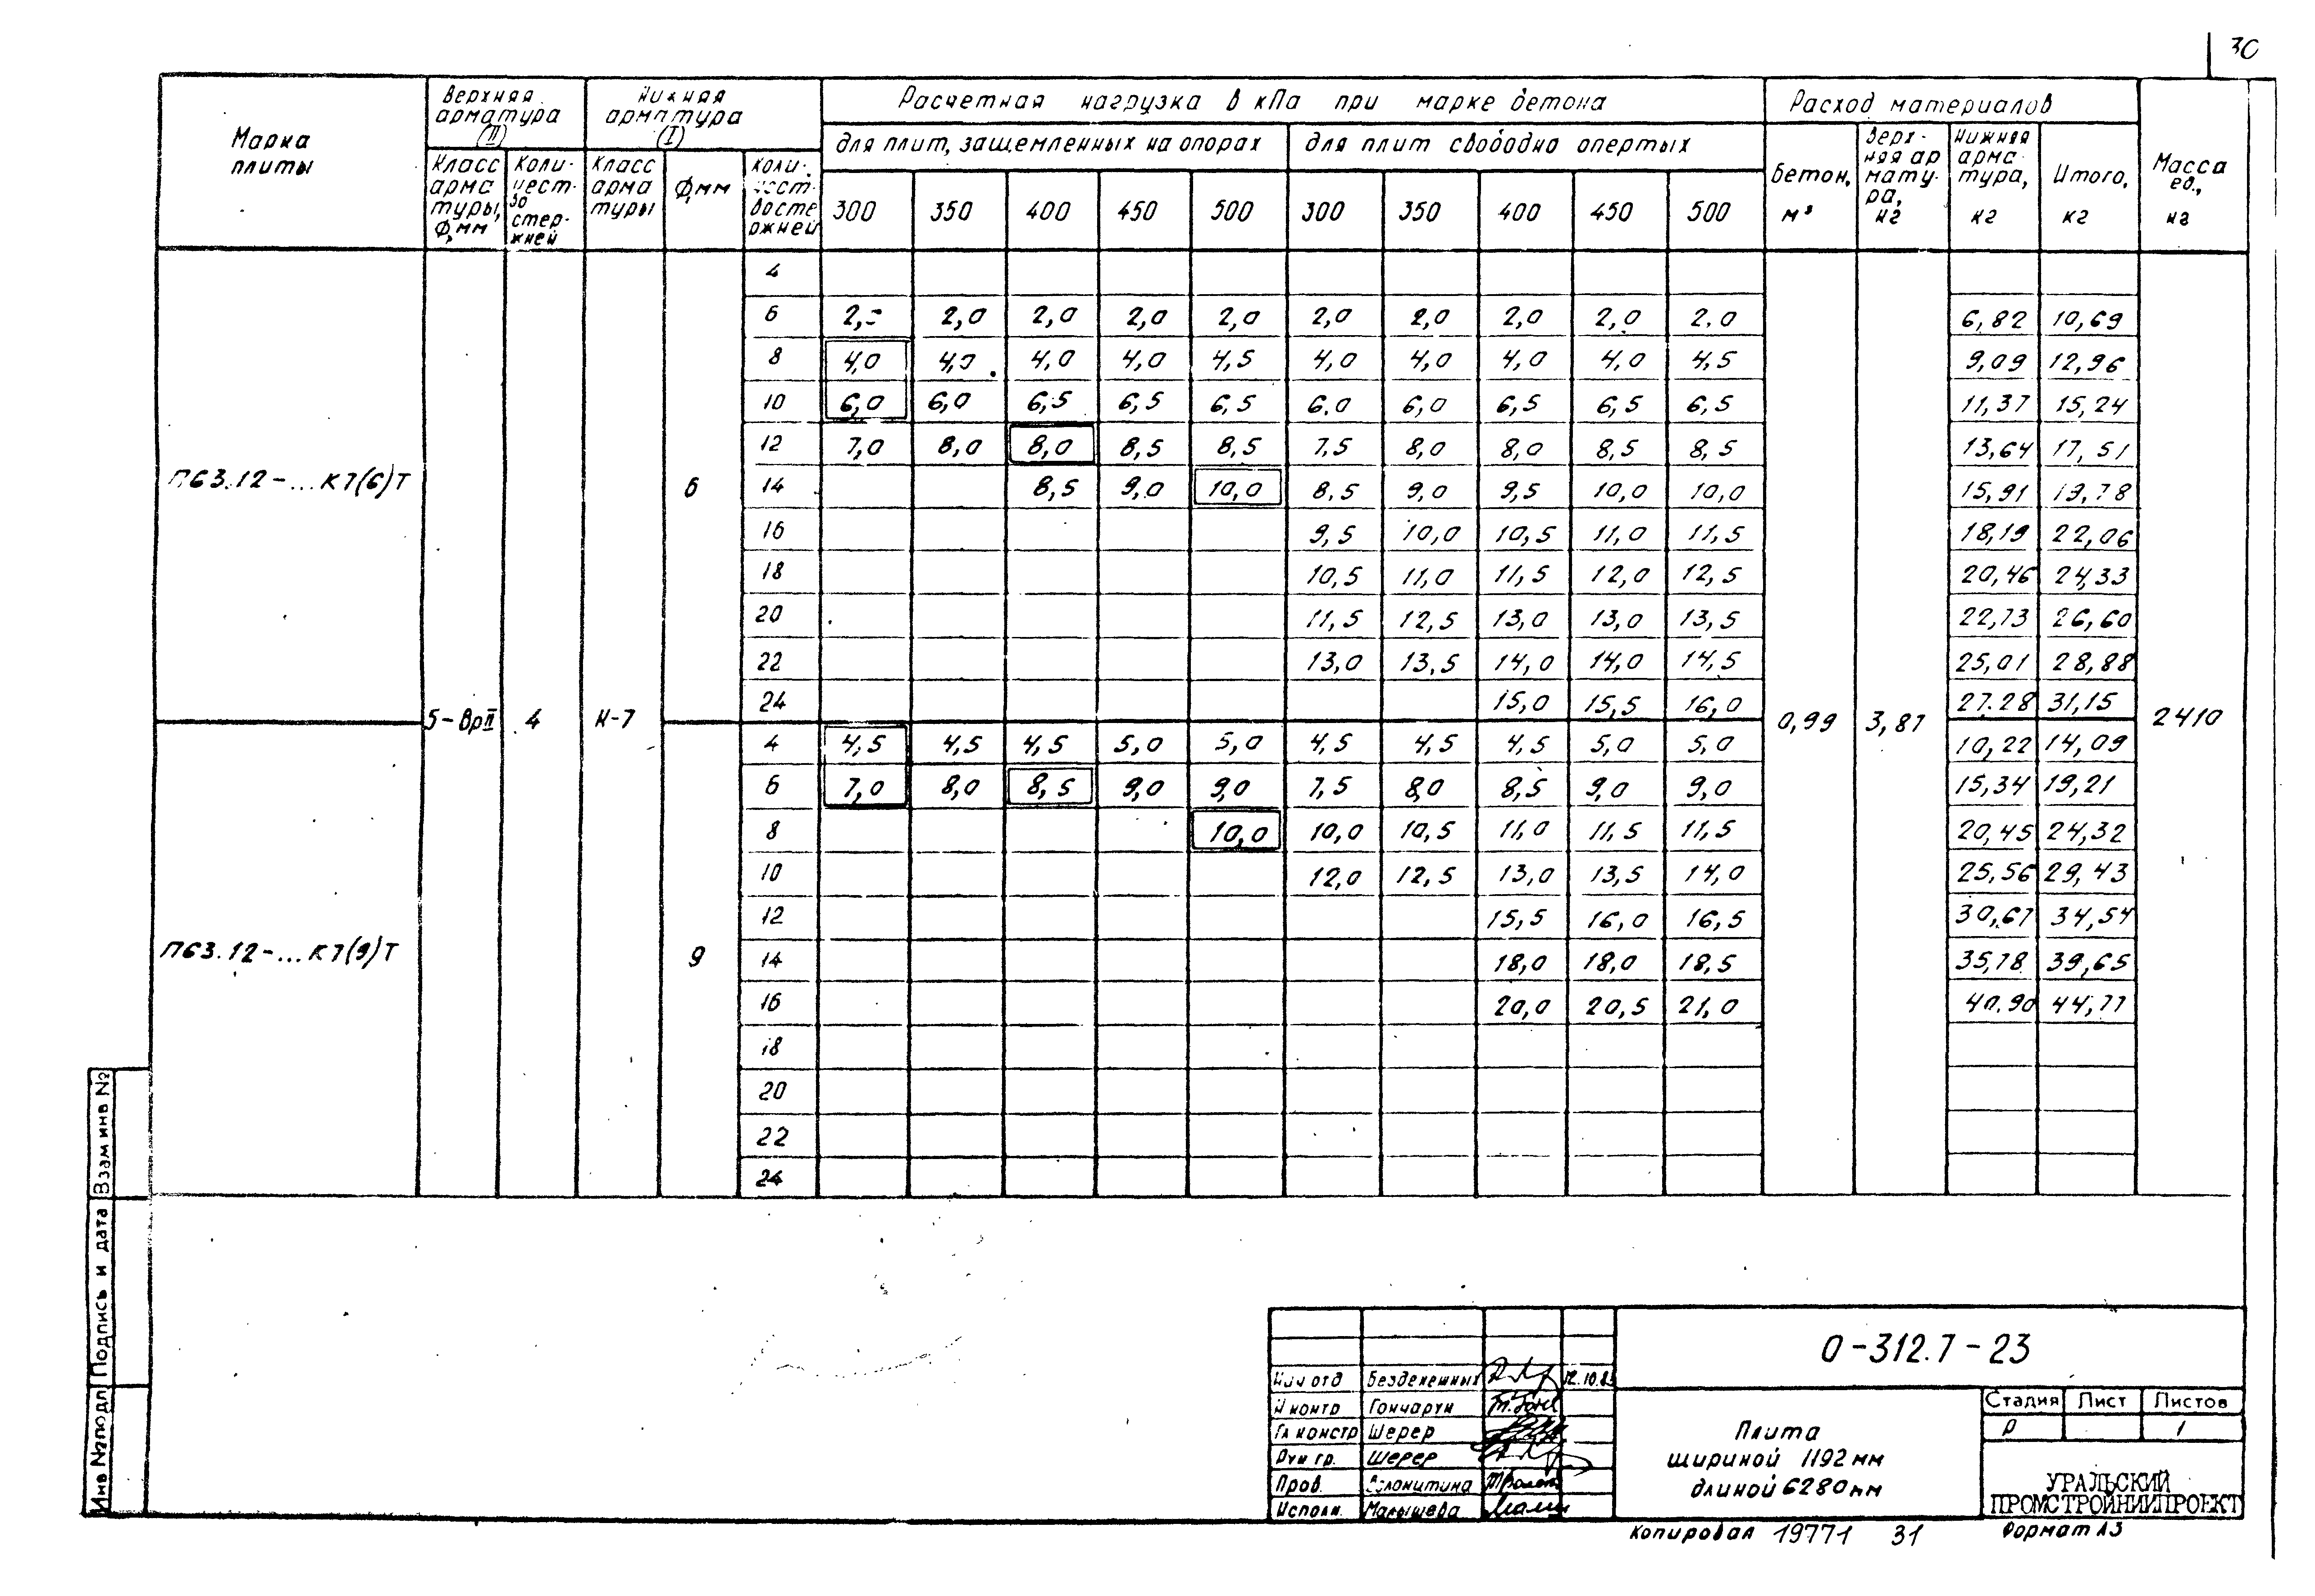 30
Марка плиты
Верхняя арматура (II)
Нижняя арматура (I)
Расчетная нагрузка в кПа при марке бетона
Расход материалов
Масса ед., кг
для плит, защемленных на опорах
для плит свободно опертых
Класс арматуры, Ф,мм
Количество стержней
Класс арматуры
Ф,мм
Количество стержней
300 350 400 450 500 300 350 400 450 500
Бетон, м³
Верхняя арматура, кг
Нижняя арматура, кг
Итого, кг
П63.12-...К7(6)Т
5-ВрII 4 К-7
6
4
6 2,0 2,0 2,0 2,0 2,0 2,0 2,0 2,0 2,0 6,82 10,69
8 4,0 4,0 4,0 4,0 4,5 4,0 4,0 4,0 4,0 4,5 9,09 12,96
10 6,0 6,0 6,5 6,5 6,5 6,0 6,0 6,5 6,5 6,5 11,37 15,24
12 7,0 8,0 8,0 8,5 8,5 7,5 8,0 8,0 8,5 8,5 13,64 17,51
14 8,5 9,0 10,0 8,5 9,0 9,5 10,0 10,0 15,91 19,78
16 9,5 10,0 10,5 11,0 11,5 18,19 22,06
18 10,5 11,0 11,5 12,0 12,5 20,46 24,33
20 11,5 12,5 13,0 13,0 13,5 22,73 26,60
22 13,0 13,5 14,0 14,0 14,5 25,01 28,88
24 15,0 15,5 16,0 27.28 31,15
0,99 3,87 2410
П63.12-...К7(9)Т
9
4 4,5 4,5 4,5 5,0 5,0 4,5 4,5 4,5 5,0 5,0 10,22 14,09
6 7,0 8,0 8,5 9,0 9,0 7,5 8,0 8,5 9,0 9,0 15,34 19,21
8 10,0 10,0 10,5 11,0 11,5 11,5 20,45 24,32
10 12,0 12,5 13,0 13,5 14,0 25,56 29,43
12 15,5 16,0 16,5 30,67 34,54
14 18,0 18,0 18,5 35,78 39,65
16 20,0 20,5 21,0 40.90 44,77
18
20
22
24
Взам инв №
Подпись и дата
Инв №подл
0-312.7-23
Нач отд Безденежных
Н контр Гончарук
Гл констр Шерер
Рук гр. Шерер
Пров.
Исполн. Малышева
Плита
шириной 1192мм
длиной 6280мм
Стадия Лист Листов
Р 1
УРАЛЬСКИЙ
ПРОМСТРОЙНИИПРОЕКТ
Копировал 19771 31 Формат А3